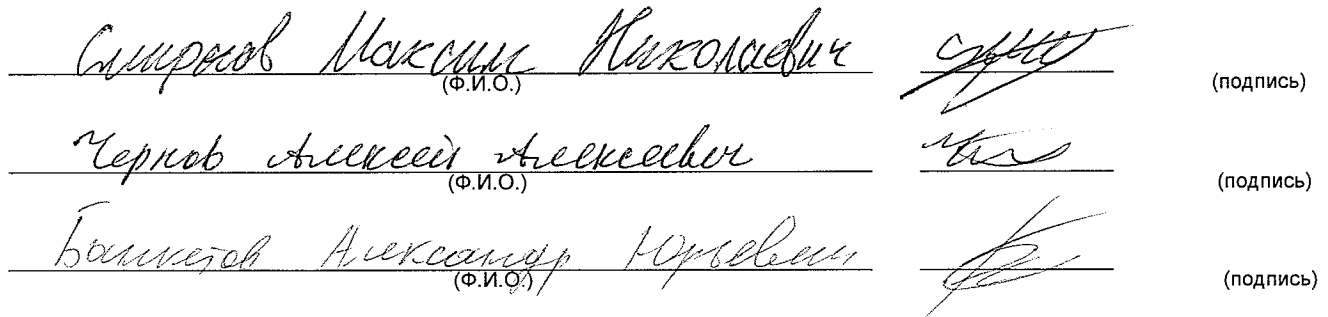 Смирнов Максим Николаевич
(Ф.И.О.) (подпись)
Чернов Алексей Алексеевич
(Ф.И.О.) (подпись)
Александр Юрьевич
(Ф.И.О.) (подпись)